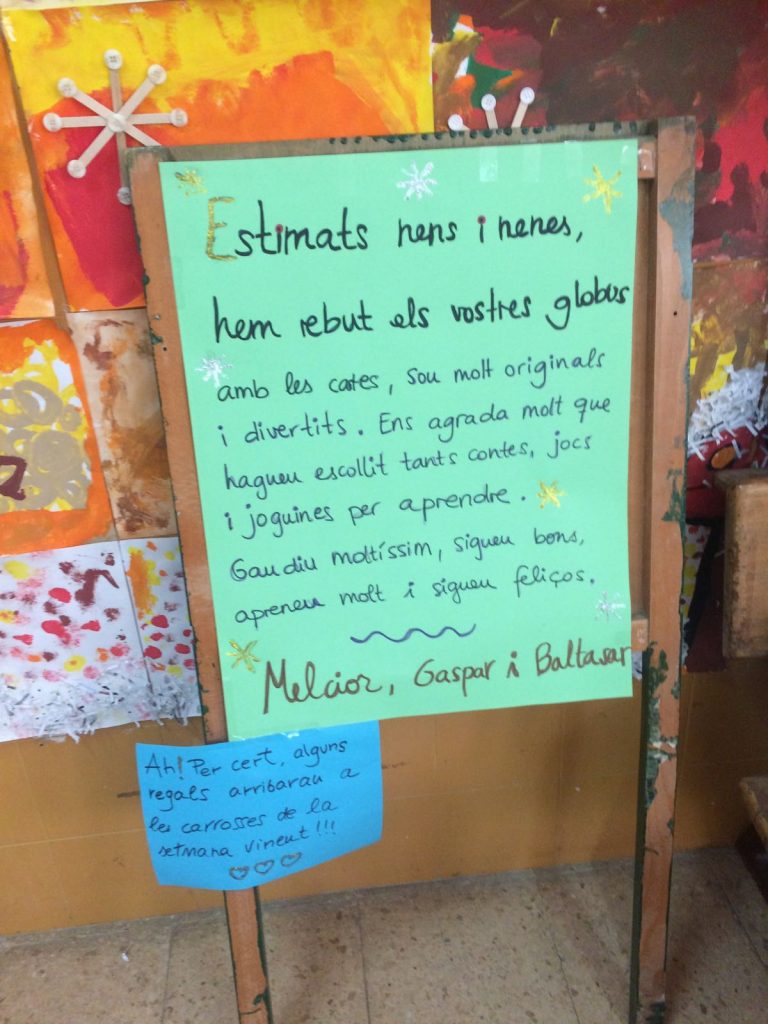 Estimats nens i nenes,
hem rebut els vostres globus
amb les cartes, sou molt originals
i divertits. Ens agrada molt que
hagueu escollit tants contes, jocs
i joguines per aprendre.
Gaudiu moltíssim, sigueu bons,
apreneu molt i sigueu feliços.
Melcior, Gaspar i Baltasar
Ah! Per cert, alguns
regals arribarau a
les carrosses de la
setmana vineut!!!